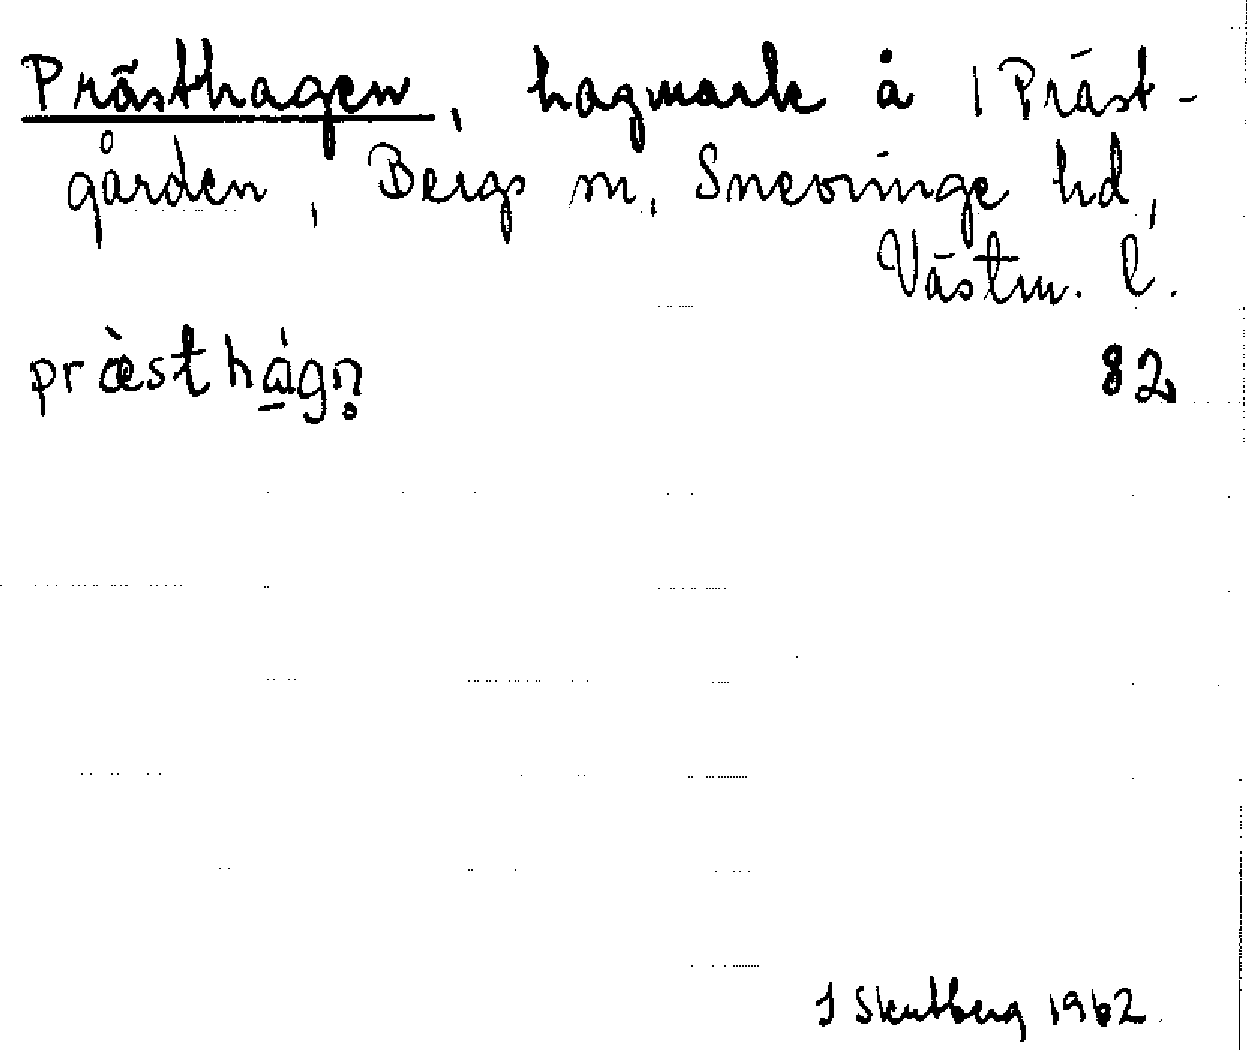 Prästhagen, hagmark å 1 Präst-
gården, Bergs sn, Snevringe hd,
Västm. l.
præ̀sthág̱n̥ 82
J Skutberg 1962